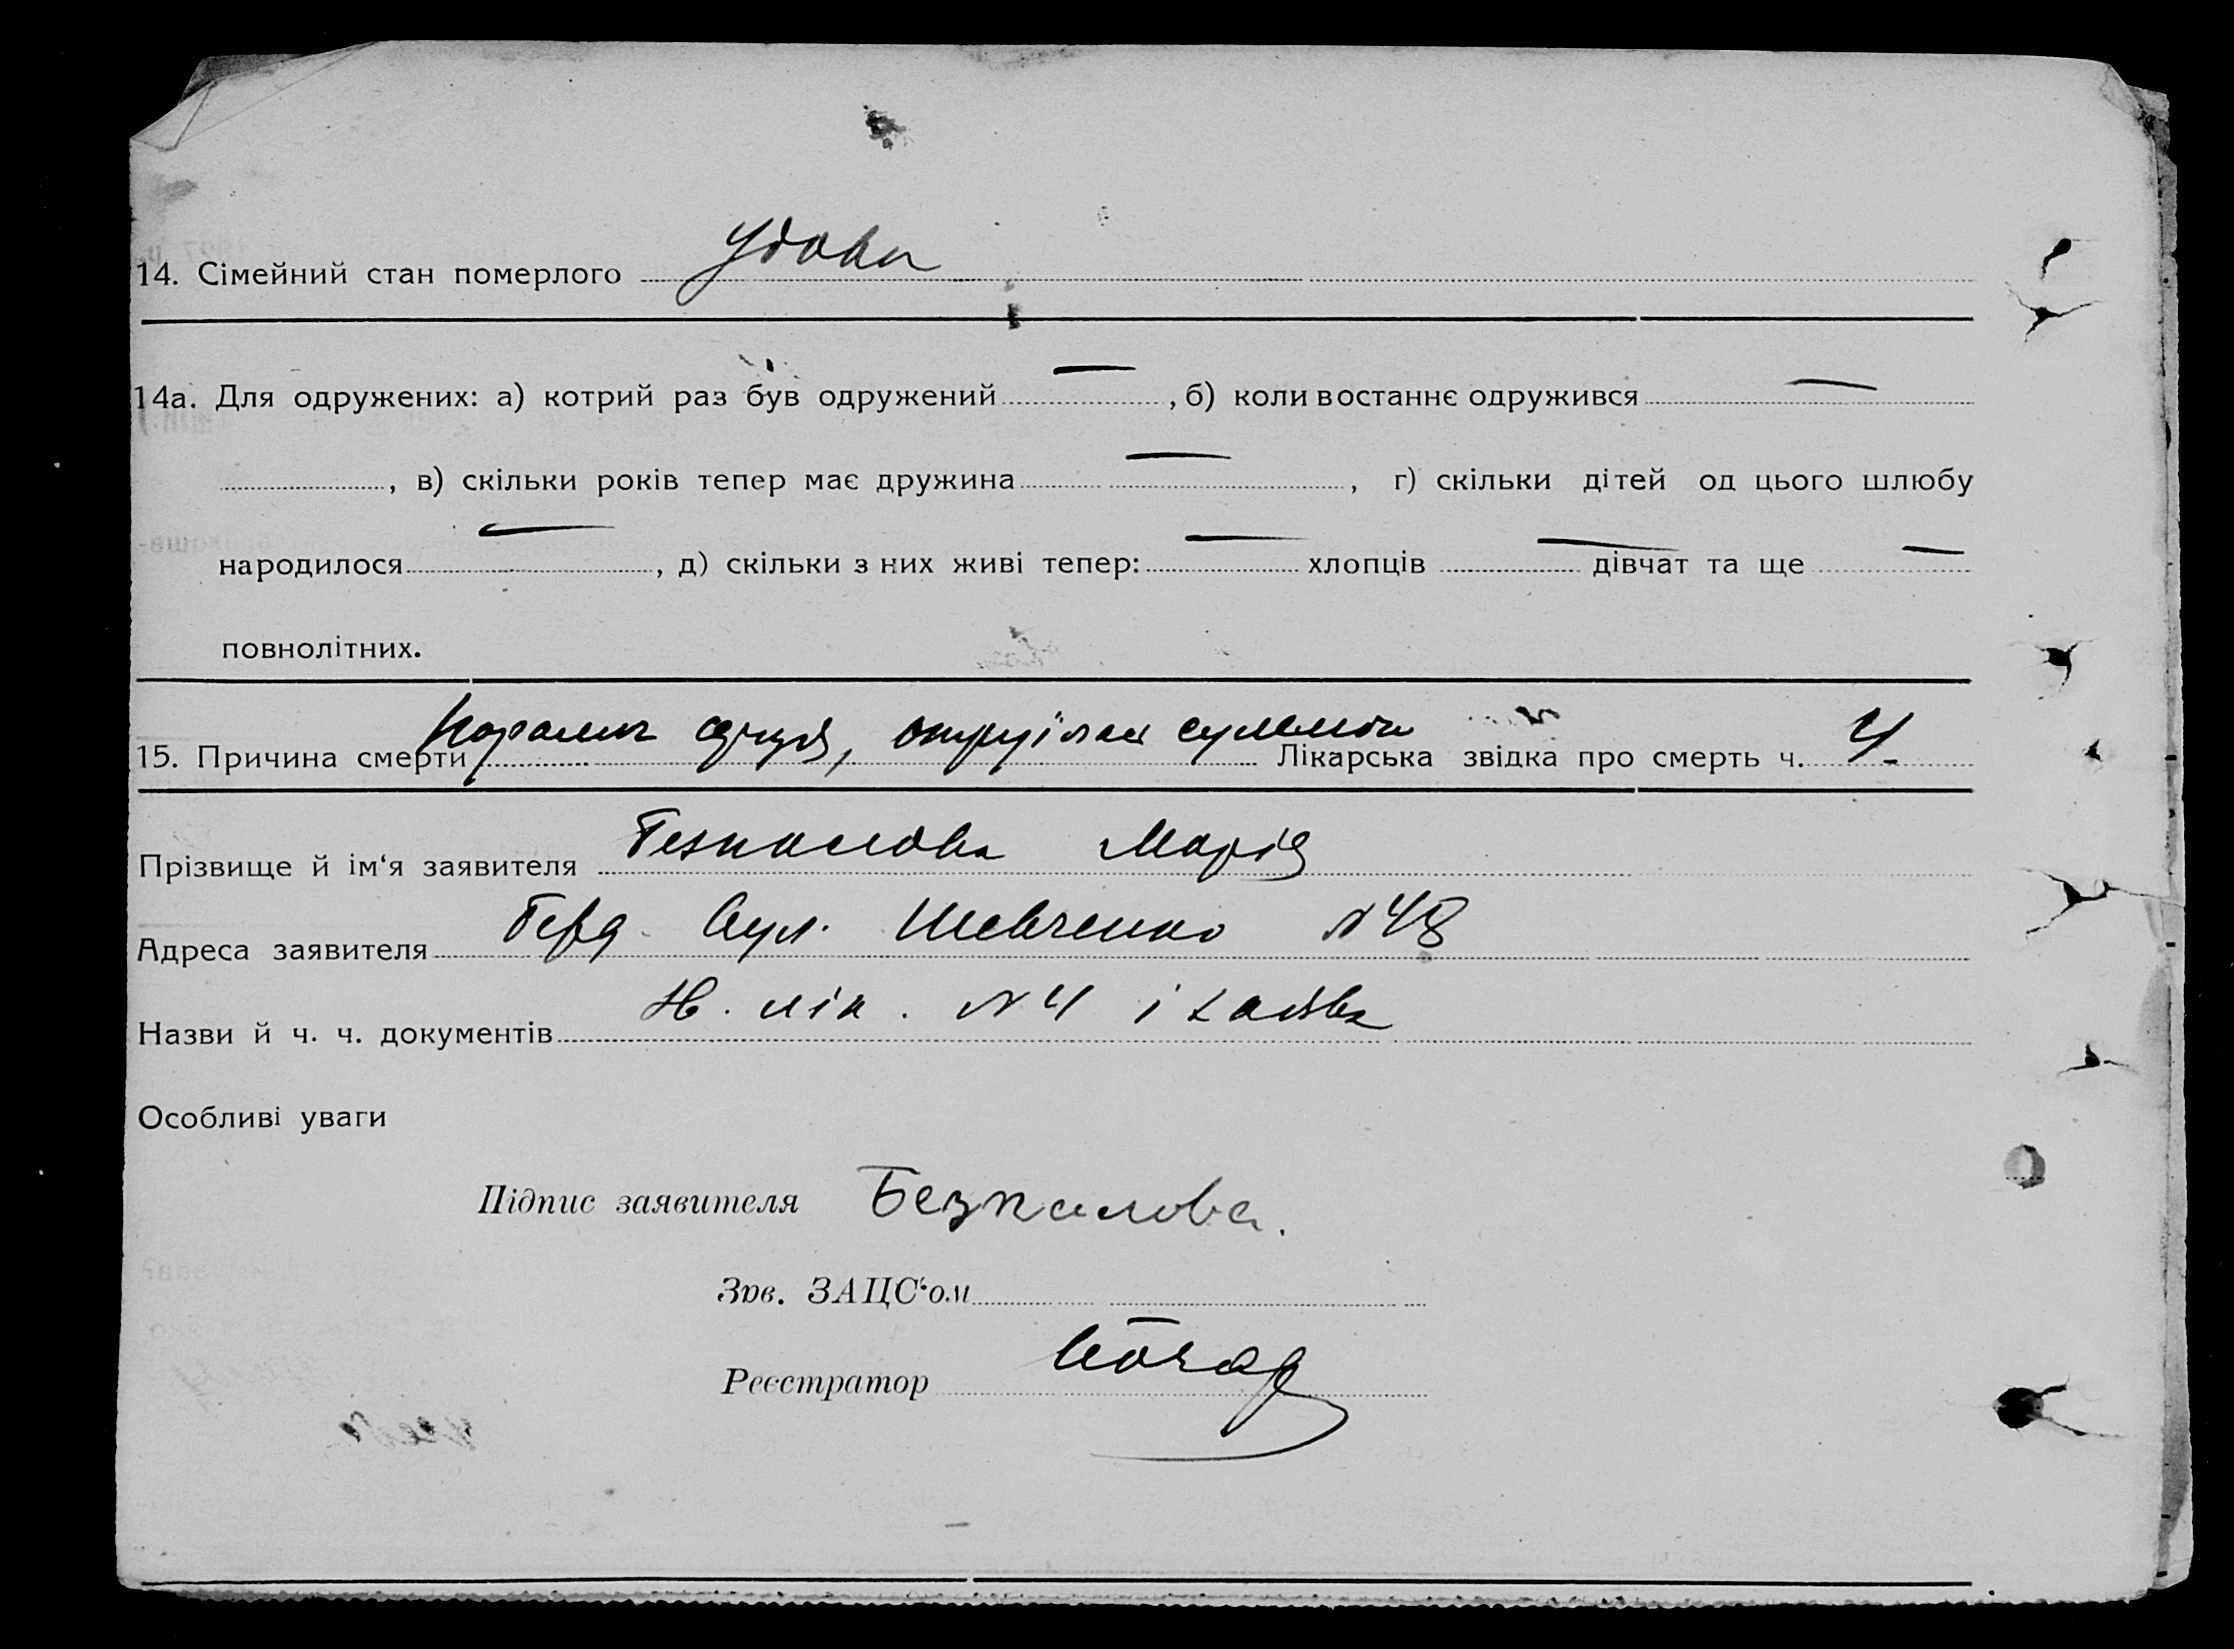 14. Сімейний стан померлого Удова
14а. Для одружених: а) котрий раз був одружений — , б) коли востаннє одружився —
, в) скільки років тепер має дружина — , г) скільки дітей од цього шлюбу
народилося — , д) скільки з них живі тепер: — хлопців — дівчат та ще —
повнолітних.
15. Причина смерти Параліч серця, отруїлась сулемою Лікарська звідка про смерть ч. 4
Прізвище й ім‘я заявителя Безпалова Марія
Адреса заявителя Берд. Вул. Шевченко №48
Назви й ч. ч. документів лік. №4 і заява
Особливі уваги
Підпис заявителя Безпалова.
Зав. ЗАЦС‘ом
Реєстратор